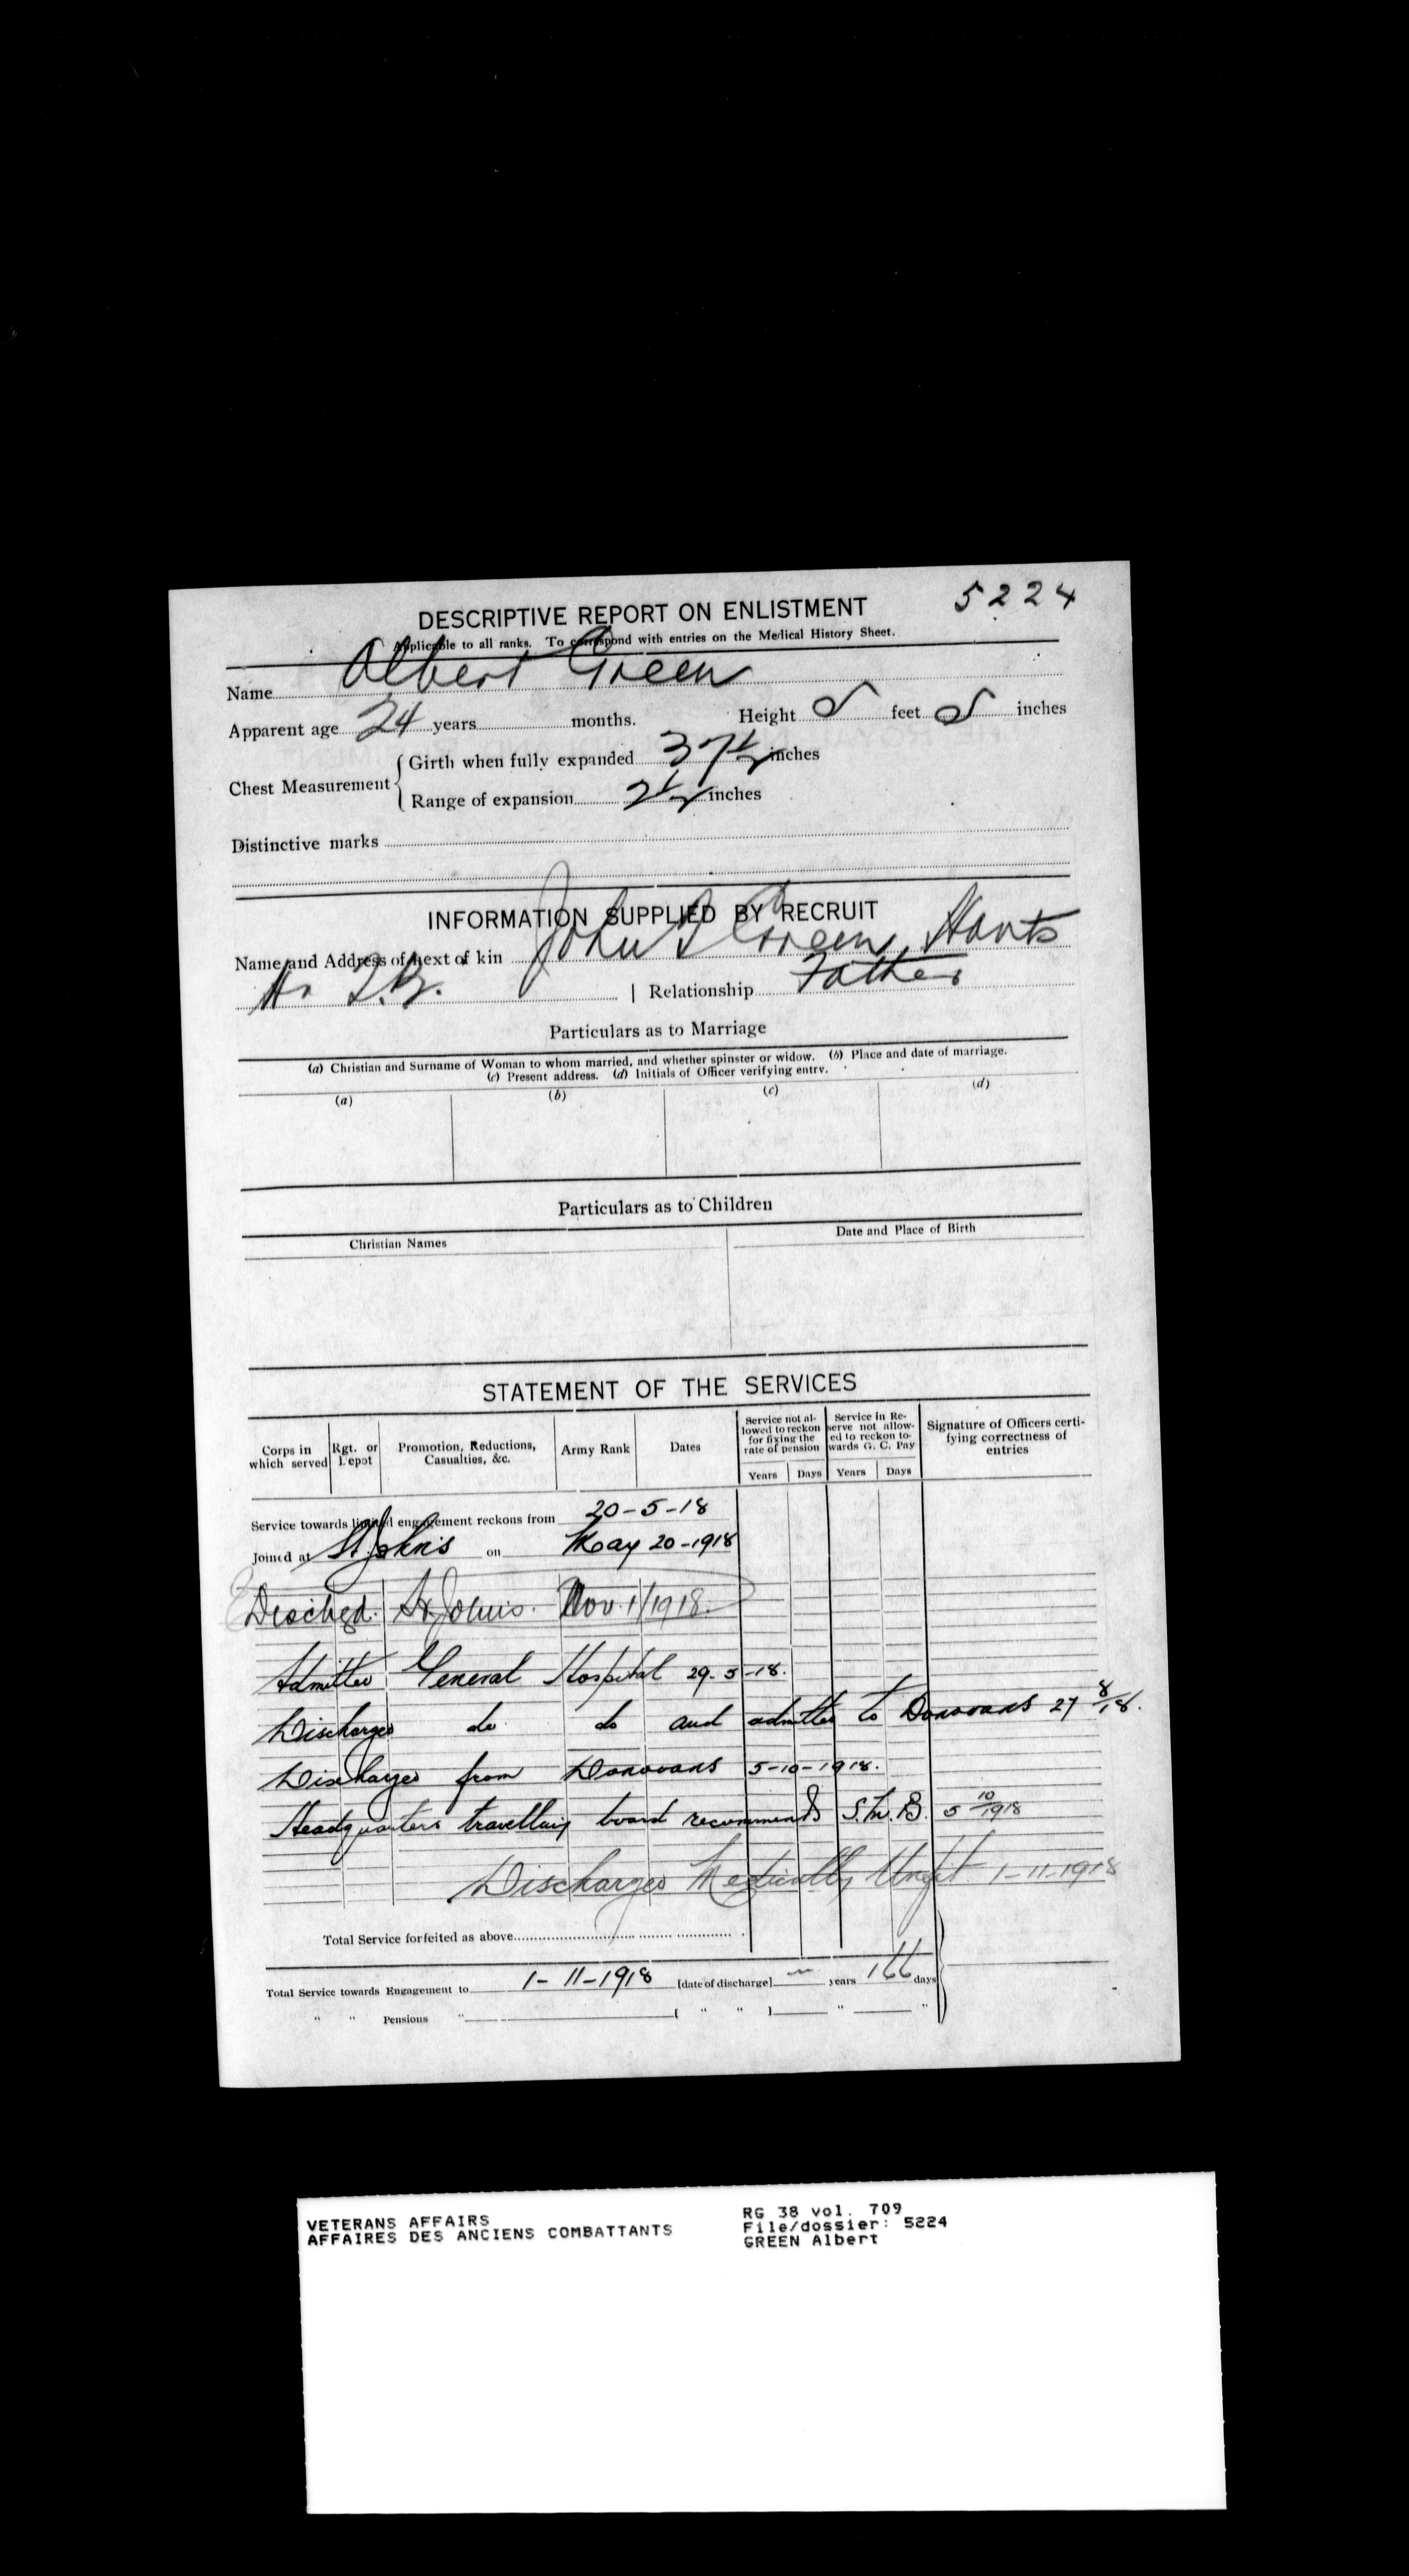 5224
DESCRIPTIVE REPORT ON ENLISTMENT
Applicable to all ranks. To correspond with entries on the Medical History Sheet.
Name Albert Green
Apparent age 24 years months. Height 5 feet 5 inches
Chest Measurement
Girth when fully expanded 37½ inches
Range of expansion 2½ inches
Distinctive marks
INFORMATION SUPPLIED BY RECRUIT
Name and Address of next of kin John Green, Hants
Hr T.B. | Relationship Father
Particulars as to Marriage
(a) Christian and Surname of Woman to whom married, and whether spinster or widow. (b) Place and date of marriage.
(c) Present address. (d) Initials of Officer verifying entry.
(a) (b) (c) (d)
Particulars as to Children
Christian Names Date and Place of Birth
STATEMENT OF THE SERVICES
Corps in which served Rgt. or Depot Promotion, Reductions, Casualties, &c. Army Rank Dates Service not allowed to reckon for fixing the rate of pension Service in Reserve not allowed to reckon towards G. C. Pay Signature of Officers certifying correctness of entries
Years Days Years Days
Service towards limited engagement reckons from 20-5-18
Joined at St. John's on May 20-1918
Disched. St. John's. Nov. 1/1918.
Admitted General Hospital 29-5-18.
Discharged do do and admitted to Donovans 27 8/18.
Discharged from Donovans 5-10-1918.
Headquarters travelling board recommends S.M.B. 5 10/1918
Discharged Medically Unfit 1-11-1918
Total Service forfeited as above
Total Service towards Engagement to 1-11-1918 [date of discharge] — years 166 days
" " Pensions " [ " " ] " "
VETERANS AFFAIRS RG 38 vol. 709
AFFAIRES DES ANCIENS COMBATTANTS File/dossier: 5224
GREEN Albert